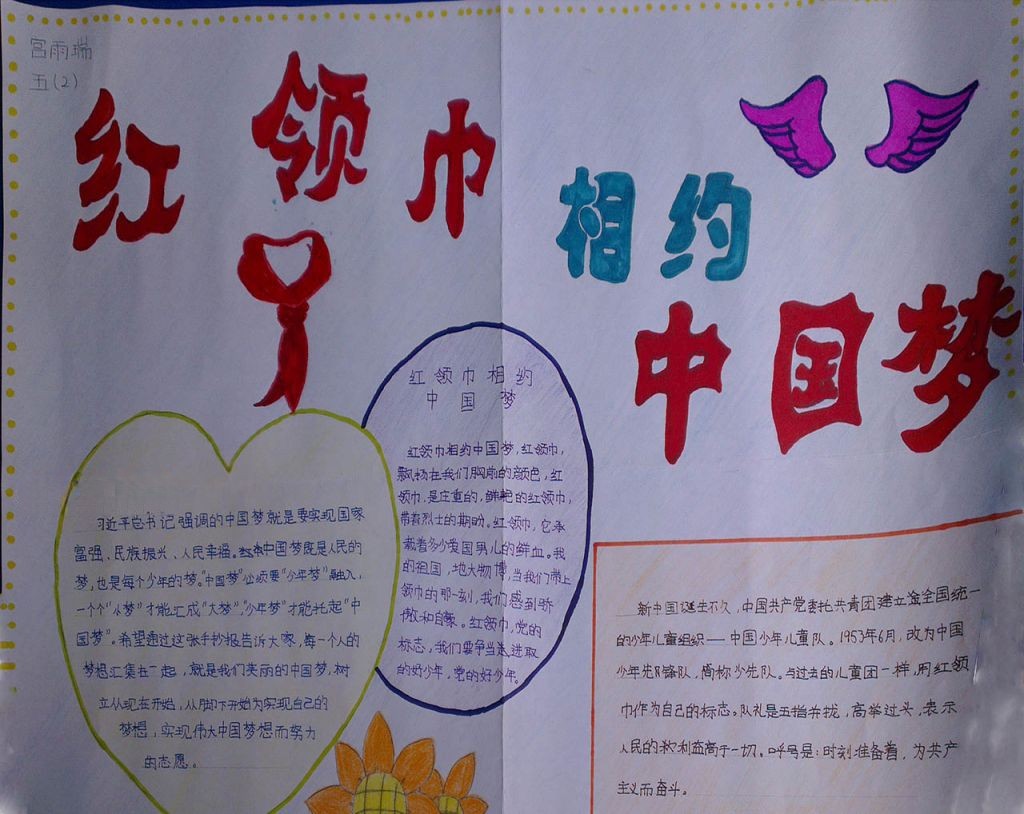 宫雨瑞
五(2)
红领巾
相约
中国梦
习近平总书记强调的中国梦就是要实现国家
富强、民族振兴、人民幸福。中国梦既是人民的
梦,也是每个少年的梦。"中国梦"必须要"少年梦"融入,
一个个"小梦"才能汇成"大梦","少年梦"才能托起"中
国梦"。希望通过这张手抄报告诉大家,每一个人的
梦想汇集在一起,就是我们美丽的中国梦,树
立从现在开始,从脚下开始为实现自己的
梦想,实现伟大中国梦想而努力
的志愿。
红领巾相约
中国梦
红领巾相约中国梦,红领巾,
飘扬在我们胸前的颜色,红
领巾,是庄重的,鲜艳的红领巾,
带着烈士的期盼。红领巾,它承
载着多少爱国男儿的鲜血。我
的祖国,地大物博,当我们带上
领巾的那一刻,我们感到骄
傲和自豪。红领巾,党的
标志,我们要争当进取
的好少年,党的好少年。
新中国诞生不久,中国共产党委托共青团建立全国统一
的少年儿童组织——中国少年儿童队。1953年6月,改为中国
少年先锋队,简称少先队。与过去的儿童团一样,用红领
巾作为自己的标志。队礼是五指并拢,高举过头,表示
人民的利益高于一切。呼号是:时刻准备着,为共产
主义而奋斗。